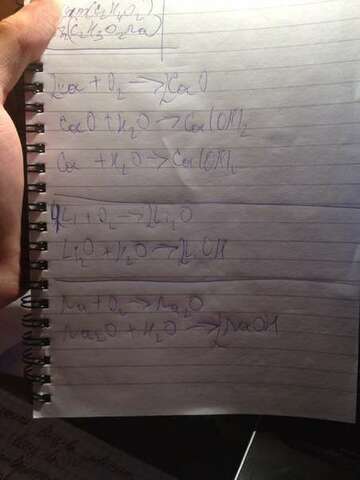 m(C₂H₄O₂)
m(C₂H₃O₂Na)
2Ca + O₂ → 2CaO
CaO + H₂O → Ca(OH)₂
Ca + H₂O → Ca(OH)₂
4Li + O₂ → 2Li₂O
Li₂O + H₂O → 2LiOH
Na + O₂ → Na₂O
Na₂O + H₂O → 2NaOH